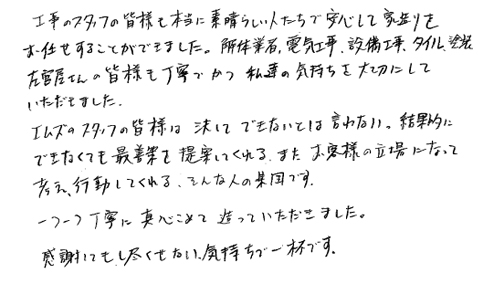 工事のスタッフの皆様も本当に素晴らしい人たちで安心して家造りを
お任せすることができました。解体業者、電気工事、設備工事、タイル、塗装
左官屋さんの皆様も丁寧でかつ私達の気持ちを大切にして
いただきました。
エムズのスタッフの皆様は決してできないとは言わない。結果的に
できなくても最善策を提案してくれる。またお客様の立場になって
考え、行動してくれる、そんな人の集団です。
一つ一つ丁寧に真心こめて造っていただきました。
感謝してもし尽くせない、気持ちで一杯です。